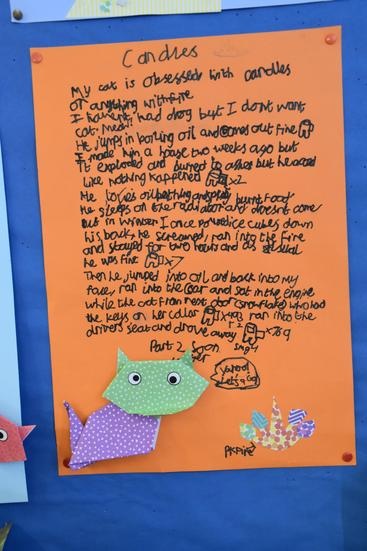 Candles
My cat is obsessed with candles
or anything with fire
I havent had drog but I dont want
cat.
He jumps in boiling oil and comes out fine
I made him a house two weeks ago but
It exploded and burned to ashes but he acted
like nothing happened x2
He loves oil bathing and burnt food
He sleeps on the radiator and doesnt come
out in winter I once poured ice cubes down
his back, he screamed, ran into the fire
and stayed for two hours and as usual
he was fine x7
Then he jumped into oil and back into my
face, ran into the car and sat in the engine
while the cat from next door (snowflake) who had
the keys on her collar ran into the
drivers seat and drove away x769
Part 2 Soon
Yahoo!
Lets go
PKfire